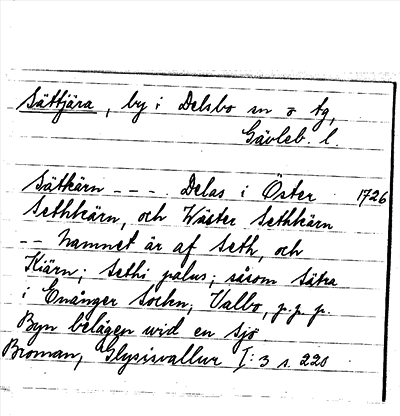 Sättjära, by i Delsbo sn o tg,
Gävleb. l.
Sätkärn - - - . Delas i Öster 1726
Sethkärn, och Wäster Sethkärn
- - hamnet är af Seth, och
Kiärn; Sethi palus; såsom Sätra
i Enånger Sochn; Valbo, p.p.p.
Byn belägen wid en sjö
Broman, Glysisvallur I: 3 s. 220